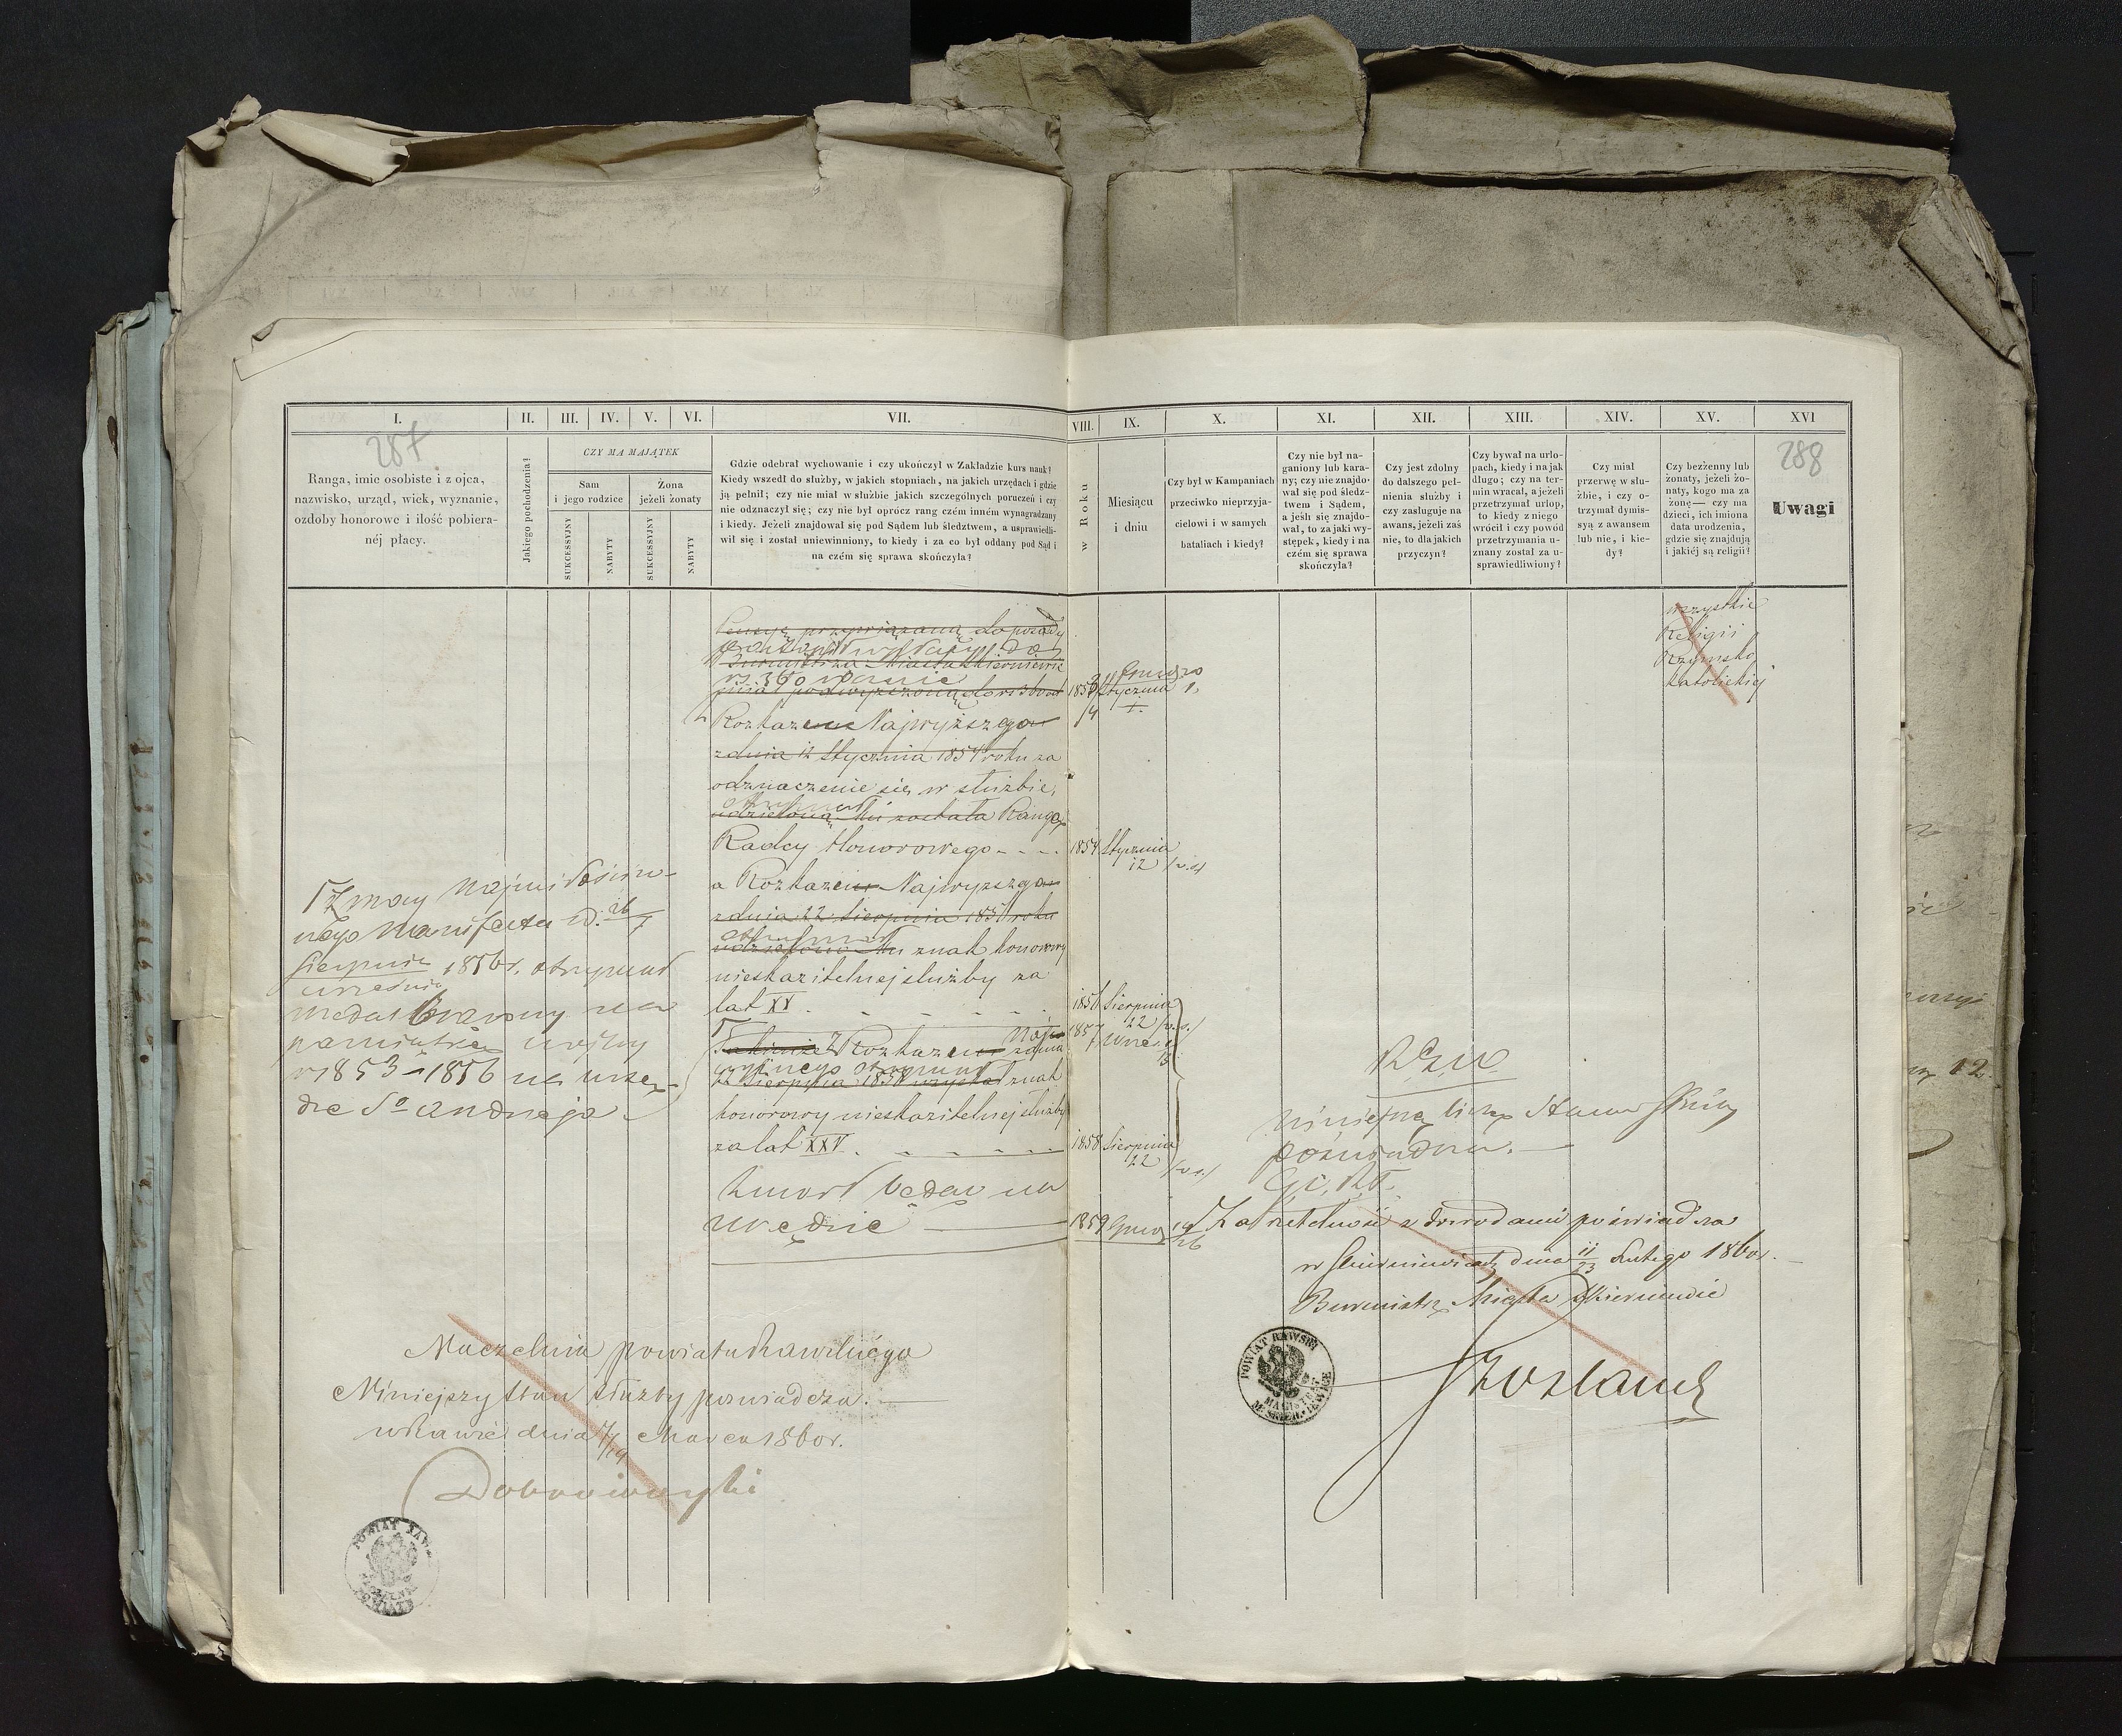 I. II. III. IV. V. VI. VII. VIII. IX. X. XI. XII. XIII. XIV. XV. XVI
287
Ranga, imie osobiste i z ojca,
nazwisko, urząd, wiek, wyznanie,
ozdoby honorowe i ilość pobiera-
néj płacy.
Jakiego pochodzenia?
CZY MA MAJĄTEK
Sam
i jego rodzice
Żona
jeżeli żonaty
SUKCESSYJNY
NABYTY
SUKCESSYJNY
NABYTY
Gdzie odebrał wychowanie i czy ukończył w Zakładzie kurs nauk?
Kiedy wszedł do służby, w jakich stopniach, na jakich urzędach i gdzie
ją pełnił; czy nie miał w służbie jakich szczególnych poruczeń i czy
nie odznaczył się; czy nie był oprócz rang czém inném wynagradzany
i kiedy. Jeżeli znajdował się pod Sądem lub śledztwem, a usprawiedli-
wił się i został uniewinniony, to kiedy i za co był oddany pod Sąd i
na czém się sprawa skończyła?
w Roku
Miesiącu
i dniu
Czy był w Kampaniach
przeciwko nieprzyja-
cielowi i w samych
bataliach i kiedy?
Czy nie był na-
ganiony lub kara-
ny; czy nie znajdo-
wał się pod śledz-
twem i Sądem,
a jeśli się znajdo-
wał, to za jaki wy-
stępek, kiedy i na
czém się sprawa
skończyła?
Czy jest zdolny
do dalszego peł-
nienia służby i
czy zasługuje na
awans, jeżeli zaś
nie, to dla jakich
przyczyn?
Czy bywał na urlo-
pach, kiedy i na jak
długo; czy na ter-
min wracał, a jeżeli
przetrzymał urlop,
to kiedy z niego
wrócił i czy powód
przetrzymania u-
znany został za u-
sprawiedliwiony?
Czy miał
przerwę w słu-
żbie, i czy o-
trzymał dymis-
syą z awansem
lub nie, i kie-
dy?
Czy bezżenny lub
żonaty, jeżeli żo-
naty, kogo ma za
żonę — czy ma
dzieci, ich imiona
data urodzenia,
gdzie się znajdują
i jakiéj są religii?
288
Uwagi
Pensyę przywiązaną do posady
Burmistrza Miasta Skierniewic
rs. 360 rocznie
Rozkazem Najwyższego
z dnia 12 Stycznia 1854 roku za
odznaczenie się w służbie,
otrzymał
udzieloną Mu została Rangę
Radcy Honorowego - - - 1854 Stycznia
12 (v.s)
a Rozkazem Najwyższego
z dnia 22 Sierpnia 1856 roku
otrzymał
udzielono Mu znak honorowy
nieskazitelnej służby za
lat XX 1856 Sierpnia
22 (v.s.)
Takimże Rozkazem z dnia
22 Sierpnia 1858 uzyskał znak
honorowy nieskazitelnej służby
za lat XXV. 1858 Sierpnia
22 (v.s.)
Umarł będąc na
urzędzie 1859
Z mocy Najmiłościw-
szego Manifestu z d. 26/7
Sierpnia 1856 r. otrzymał
Września
medal bronzowy na
pamiątkę wojny
r 1853 - 1856 na wstę-
dze So Andrzeja
wszystkie
Religii
Rzymsko
katolickiej
niniejszą listę Stanu Służby
poświadcza. —
Za rzetelność z dowodami poświadcza
w Skierniewicach dnia 11/23 Lutego 1860 r.
Burmistrz Miasta Skierniewic
POWIAT RAWSKI
MAGISTRAT
Naczelnik powiatu Rawskiego
Niniejszy Stan Służby poswiadcza. —
w Rawie dnia 7/19 Marca 1860 r.